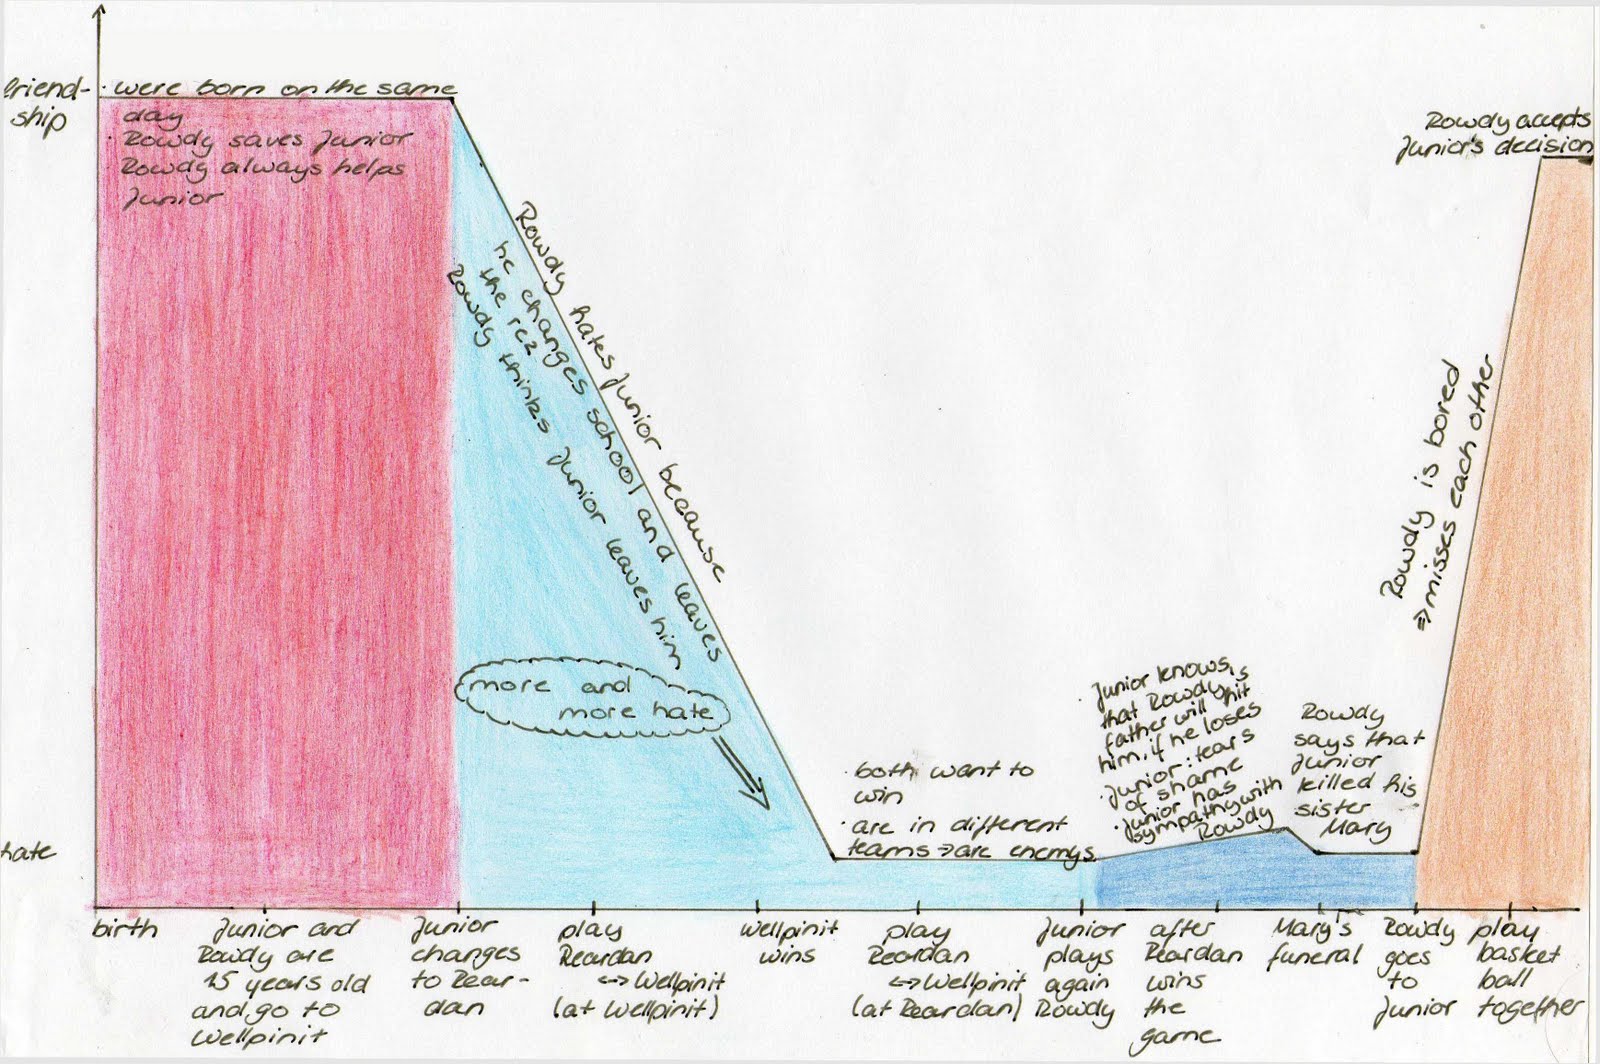 friend-
ship
· were born on the same
day
· Rowdy saves Junior
· Rowdy always helps
Junior
Rowdy hates Junior because
he changes school and leaves
the rez
Rowdy thinks Junior leaves him
more and
more hate
· both want to
win
· are in different
teams ⇒ are enemys
· Junior knows
that Rowdy's
father will hit
him, if he loses
· Junior: tears
of shame
· Junior has
sympathy with
Rowdy
Rowdy
says that
Junior
killed his
sister
Mary
Rowdy is bored
⇒ misses each other
Rowdy accepts
Junior's decision
hate
birth
Junior and
Rowdy are
15 years old
and go to
Wellpinit
Junior
changes
to Rear-
dan
play
Reardan
↔ Wellpinit
(at Wellpinit)
Wellpinit
wins
play
Reardan
↔ Wellpinit
(at Reardan)
Junior
plays
again
Rowdy
after
Reardan
wins
the
game
Mary's
funeral
Rowdy
goes
to
Junior
play
basket
ball
together